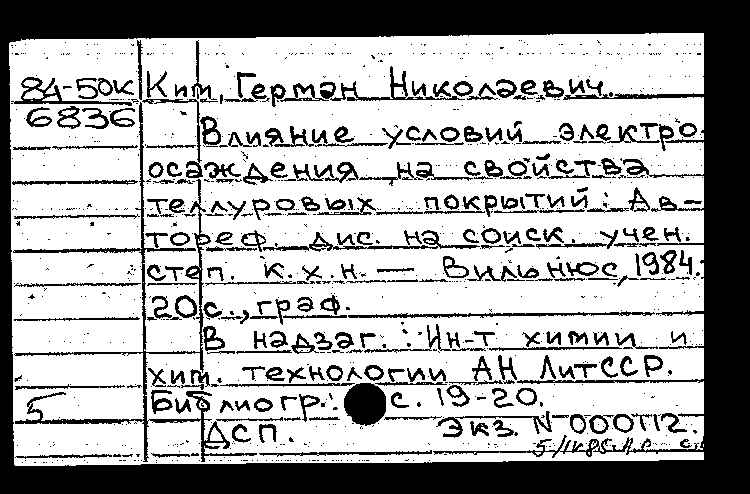 84-50К Ким, Герман Николаевич.
6836
Влияние условий электро-
осаждения на свойства
теллуровых покрытий: Ав-
тореф. дис. на соиск. учен.
степ. к.х.н. — Вильнюс, 1984.-
20с., граф.
В надзаг.: Ин-т химии и
хим. технологии АН ЛитССР.
5 Библиогр.: с. 19-20.
ДСП. Экз. N 000112.
5/IV 85